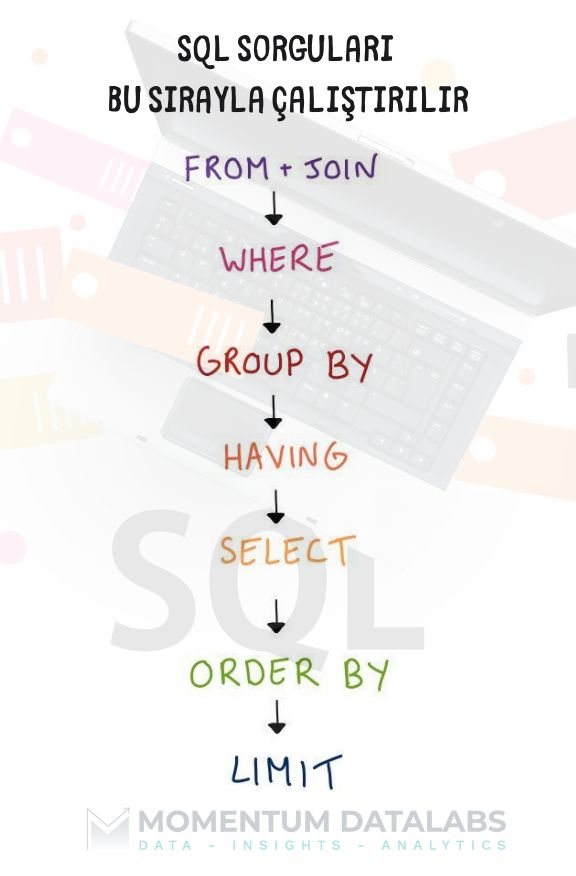 SQL SORGULARI
BU SIRAYLA ÇALIŞTIRILIR
FROM + JOIN
WHERE
GROUP BY
HAVING
SELECT
ORDER BY
LIMIT
SQL
MOMENTUM DATALABS
DATA - INSIGHTS - ANALYTICS